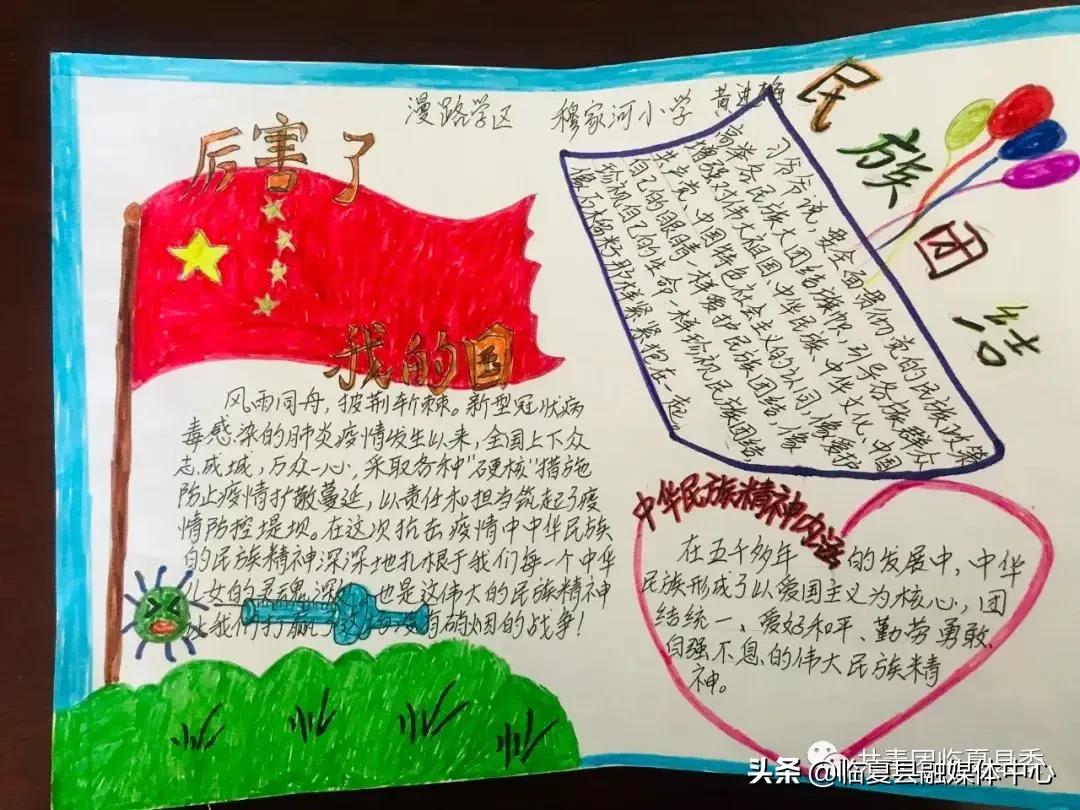 漫路学区 穆家河小学 黄进梅
厉害了
我的国
风雨同舟，披荆斩棘。新型冠状病
毒感染的肺炎疫情发生以来，全国上下众
志成城，万众一心，采取各种“硬核”措施
防止疫情扩散蔓延，以责任和担当筑起了疫
情防控堤坝。在这次抗击疫情中中华民族
的民族精神深深地扎根于我们每一个中华
儿女的灵魂深 也是这伟大的民族精神
我们打赢 硝烟的战争！
民族团结
习爷爷说，要全面贯彻党的民族政策
高举各民族大团结旗帜，引导各族群众
增强对伟大祖国、中华民族、中华文化、中国
共产党、中国特色社会主义的认同，像爱护
自己的眼睛一样爱护民族团结，像
珍视自己的生命一样珍视民族团结
像石榴籽那样紧紧抱在一起。
中华民族精神内涵
在五千多年的发展中，中华
民族形成了以爱国主义为核心，团
结统一、爱好和平、勤劳勇敢、
自强不息的伟大民族精
神。
共青团临夏县委
头条 @临夏县融媒体中心